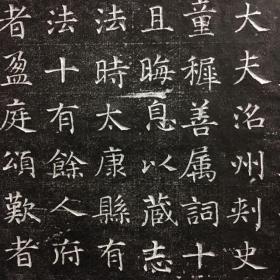 大夫洺州刾史
童穉善属詞十
且晦息以藏志
法時太康縣有
法十有餘人府
者盈庭頌歎者